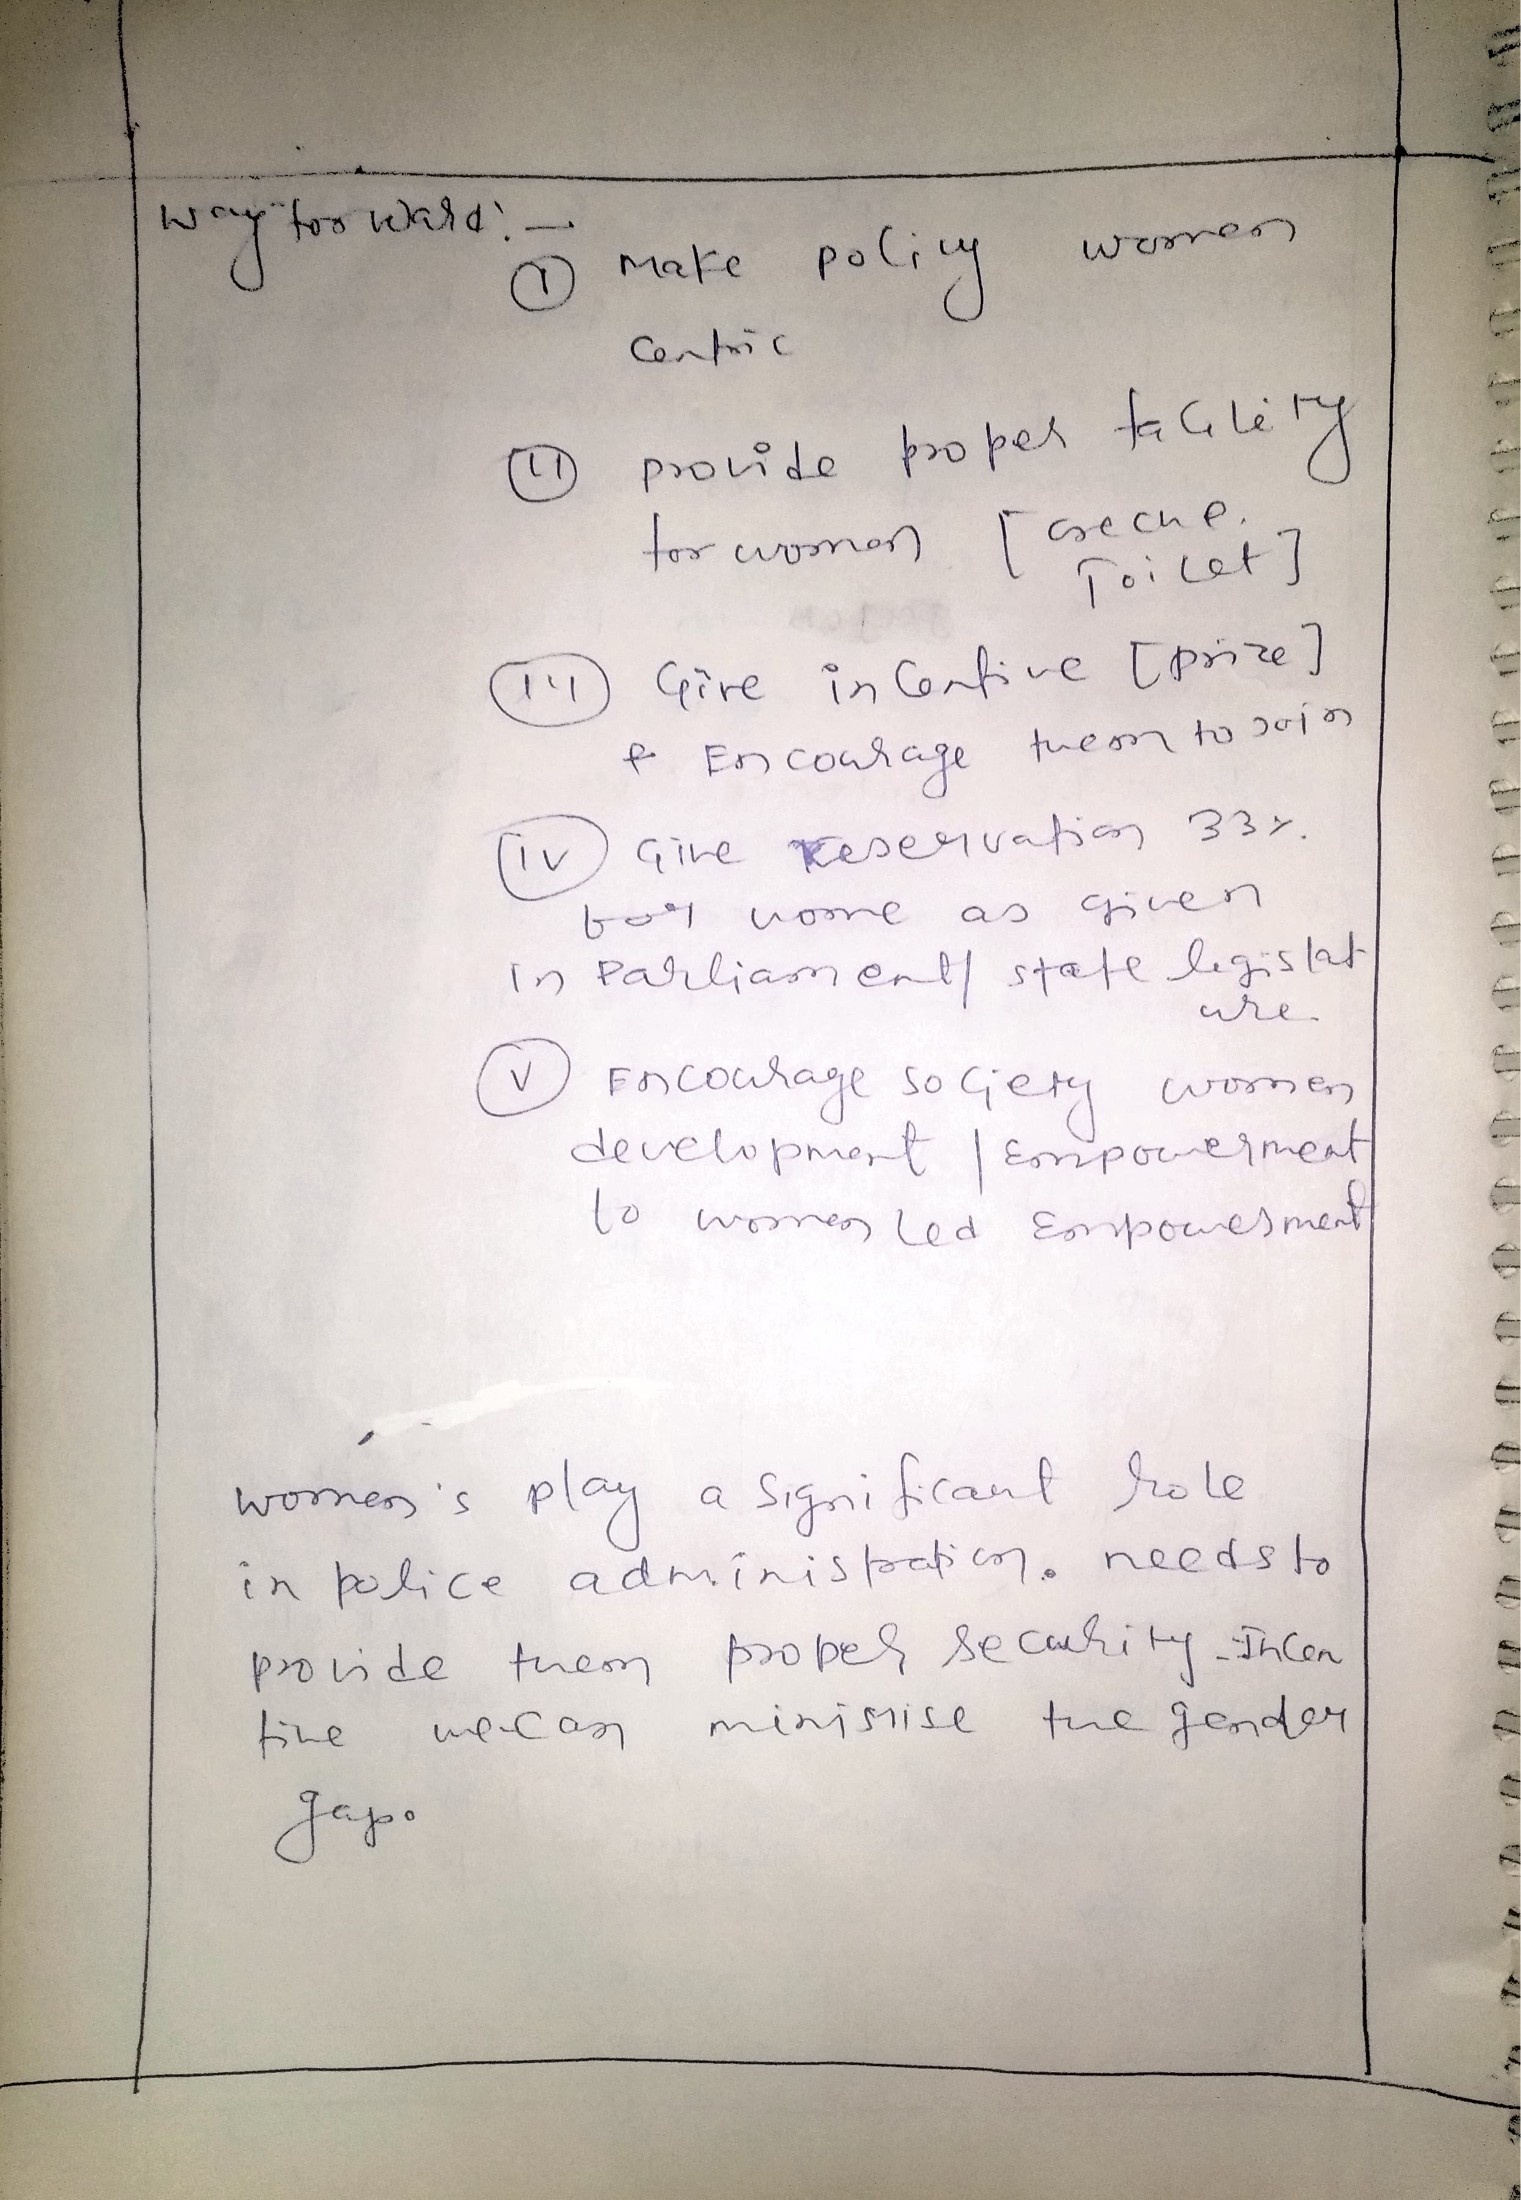 Way forward :-
(I) Make policy women
centric
(II) provide proper facility
for women [creche.
Toilet]
(III) Give incentive [prize]
& Encourage them to join
(IV) Give reservation 33%.
for wome as given
in Parliament/ state legislat
ure.
(V) Encourage society women
development / Empowerment
to women led Empowerment
women's play a significant role
in police administration. needs to
provide them proper security - Incen
tive we can minimise the gender
gap.